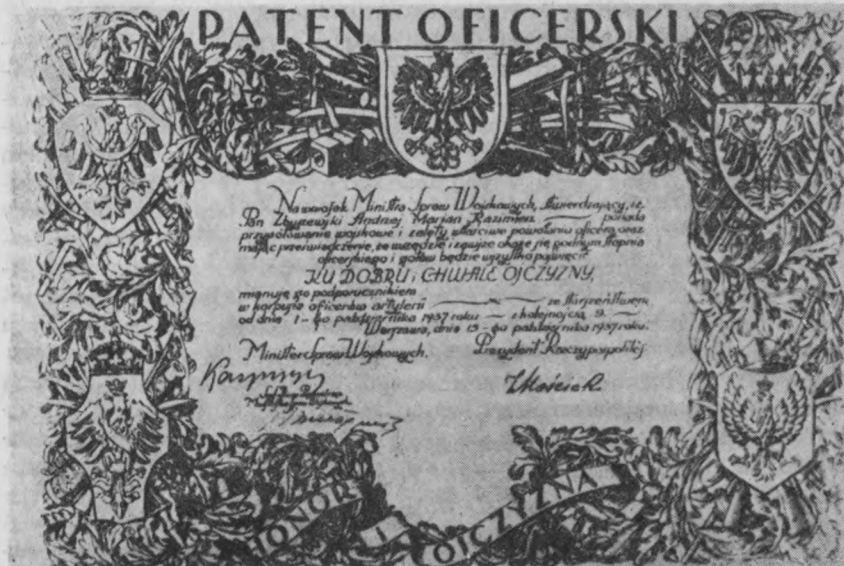 PATENT OFICERSKI
Na wniosek Ministra Spraw Wojskowych, stwierdzający, że
Pan Zbyszewski Andrzej Marjan Kazimierz posiada
przygotowanie wojskowe i zalety właściwe powołaniu oficera oraz
mając przeświadczenie, że wszędzie i zawsze okaże się godnym stopnia
oficerskiego i gotów będzie wszystko poświęcić
KU DOBRU i CHWALE OJCZYZNY,
mianuję go podporucznikiem
w korpusie oficerów artylerii ze starszeństwem
od dnia 1-go października 1937 roku z kolejnością 9.
Warszawa, dnia 15-go października 1937 roku.
Minister Spraw Wojskowych. Prezydent Rzeczypospolitej
IMościcki
HONOR I OJCZYZNA